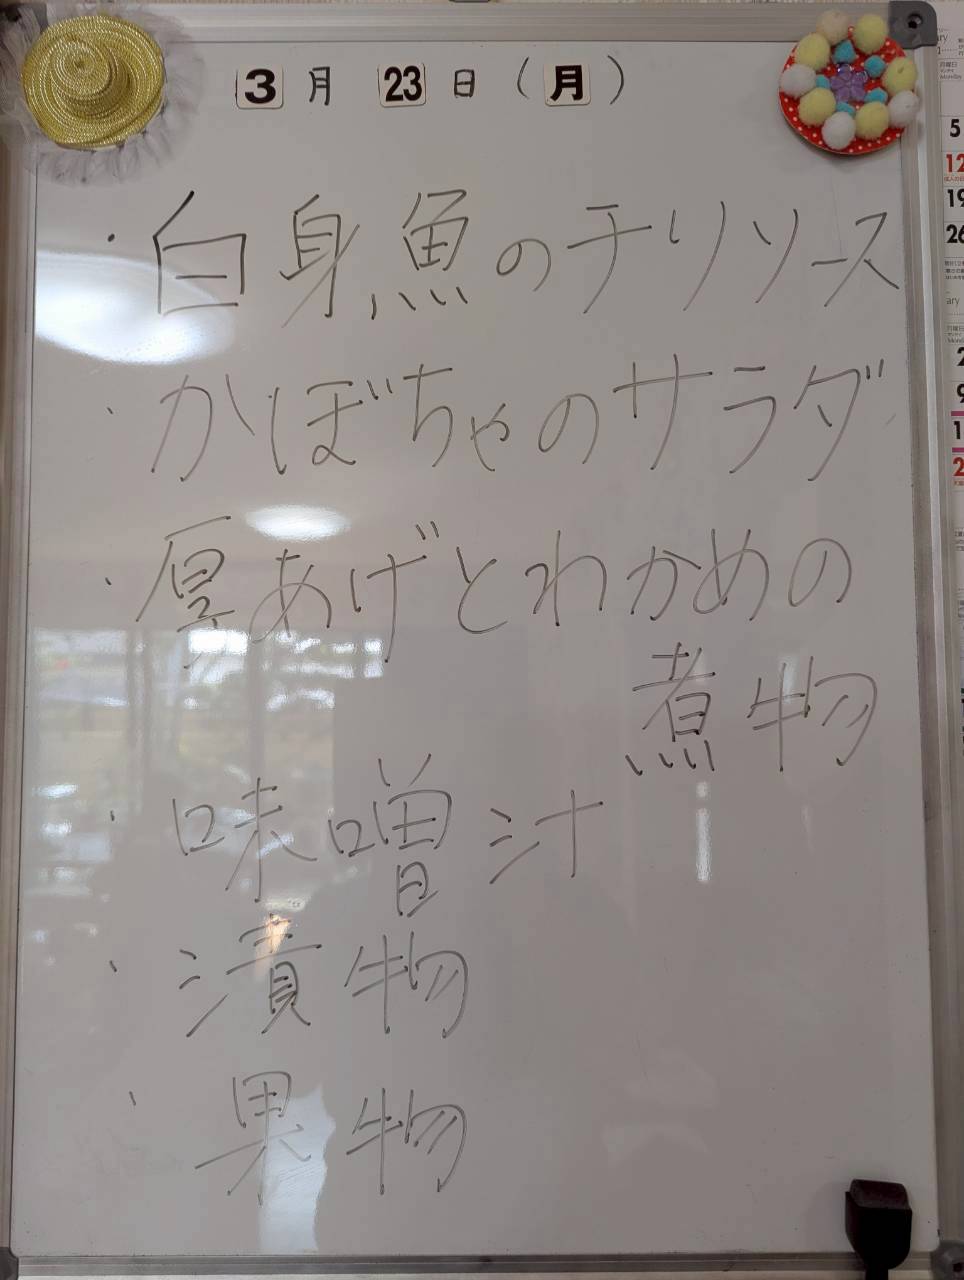 3月 23日(月)
・白身魚のチリソース
・かぼちゃのサラダ
・厚あげとわかめの
煮物
・味噌汁
・漬物
・果物
5
12
19
26